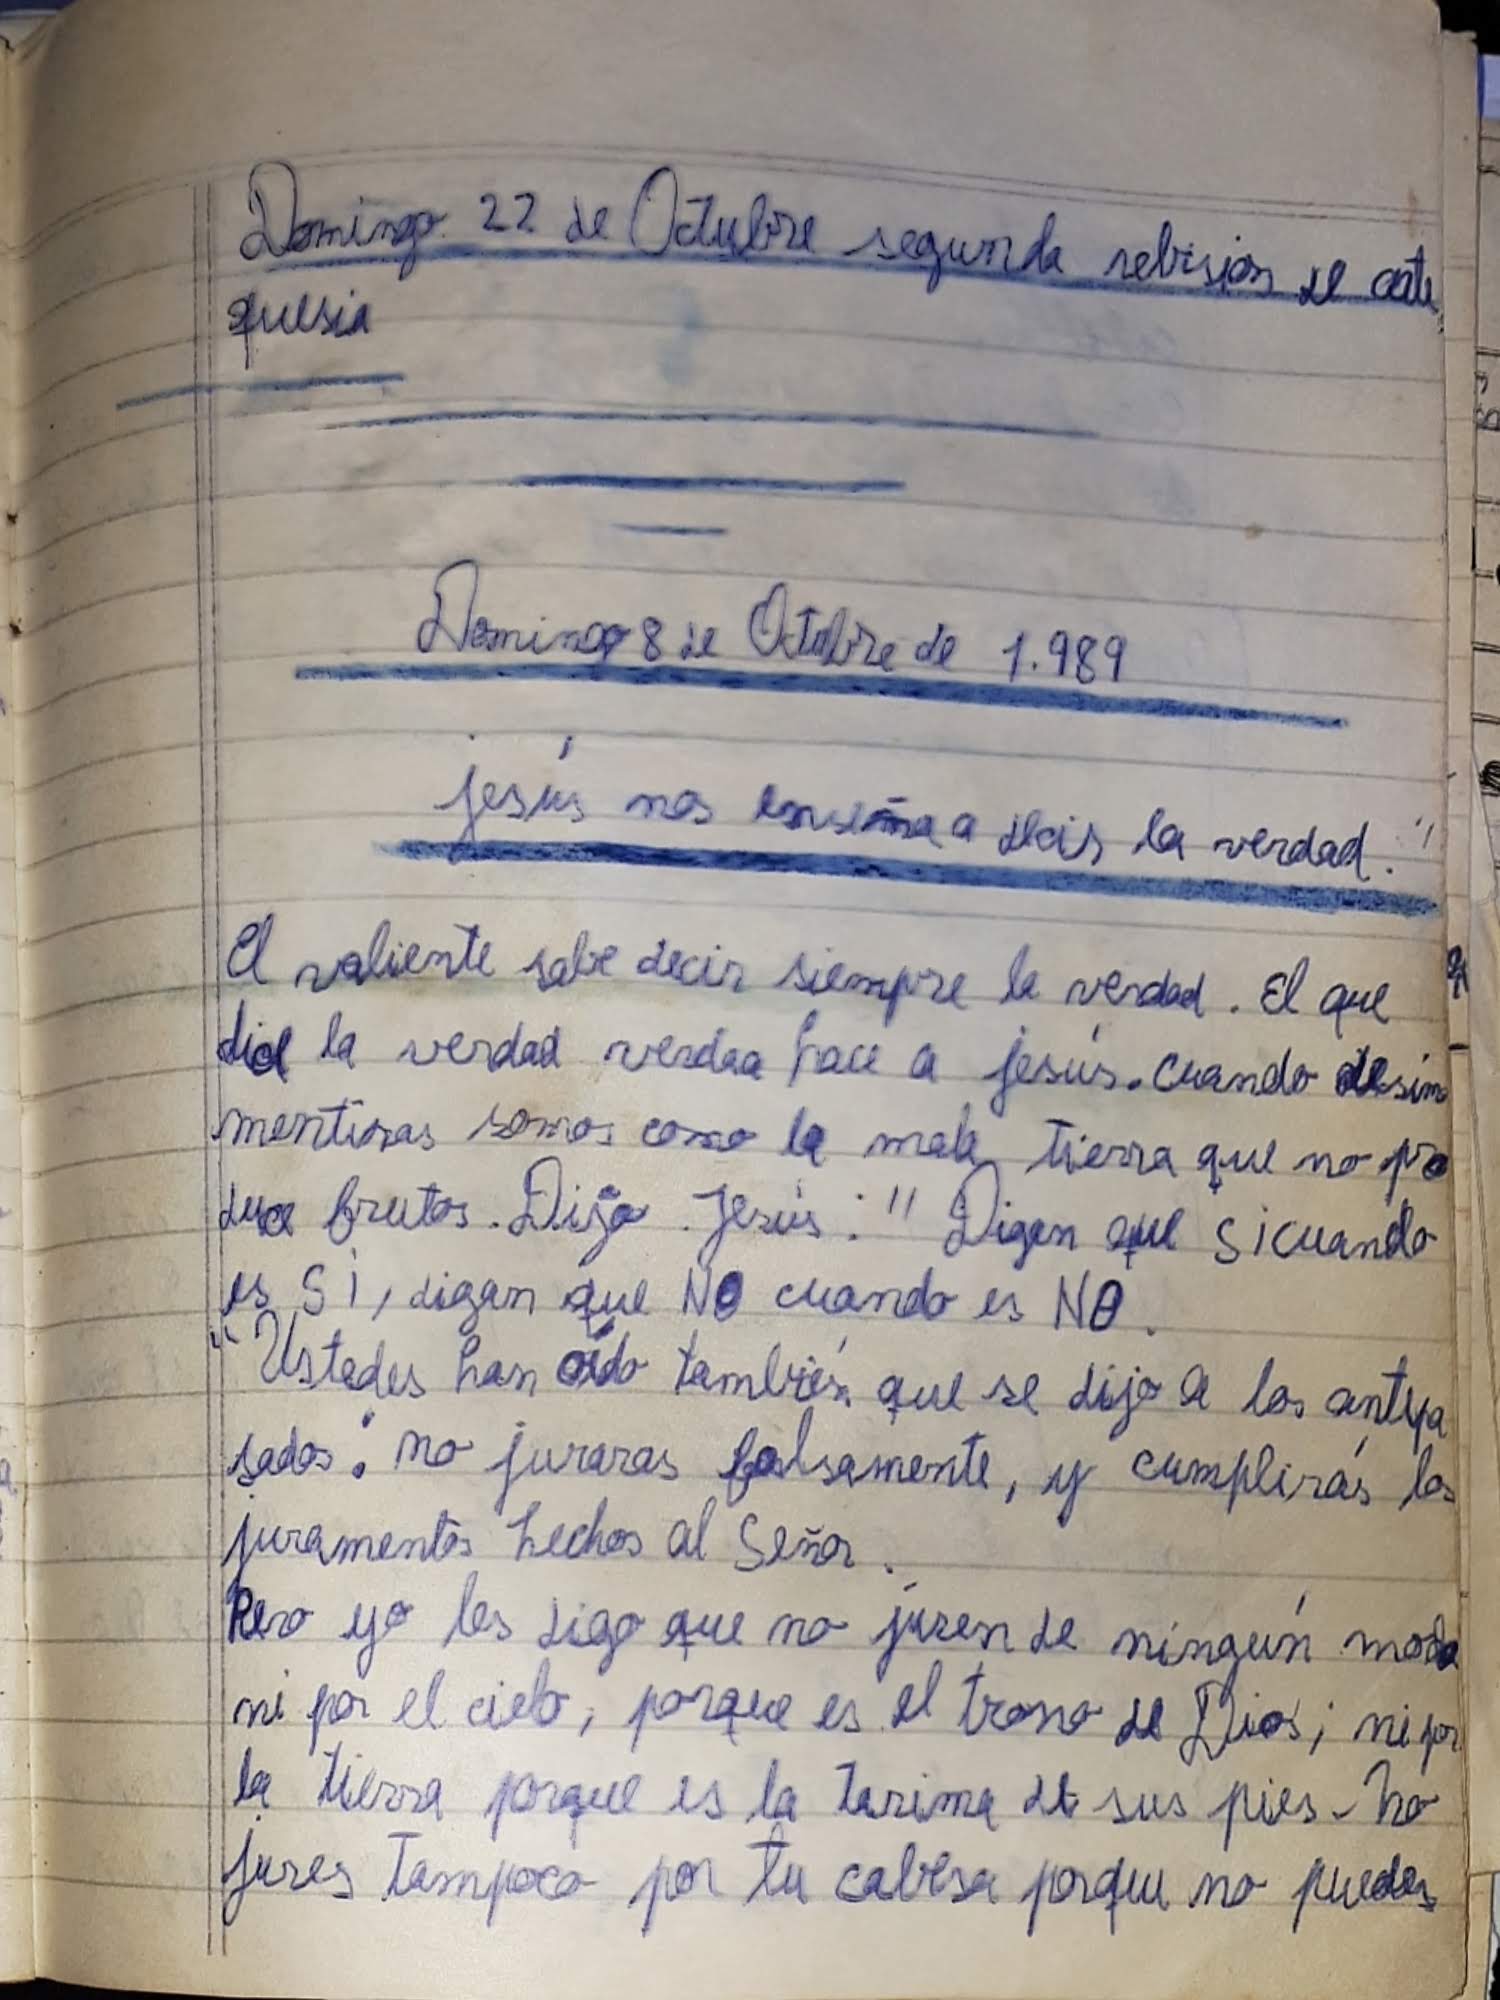 Domingo 22 de Octubre segunda rebision de cate
quesia
Domingo 8 de Octubre de 1.989
jesús nos enseña a decir la verdad."
El valiente sabe decir siempre la verdad. El que
dice la verdad verdaa hace a jesús. cuando desimo
mentiras somos como la mala tierra que no pro
duce frutos. Dijo Jesús: " Digan que si cuando
es Si, digan que NO cuando es NO.
"Ustedes han oído también que se dijo a los antepa
sados: no juraras falsamente, y cumplirás los
juramentos hechos al Señor.
Pero yo les digo que no juren de ningún modo
ni por el cielo, porque es el trono de Dios; ni por
la tierra porque es la tarima de sus pies - No
jures tampoco por tu cabesa porque no puedes